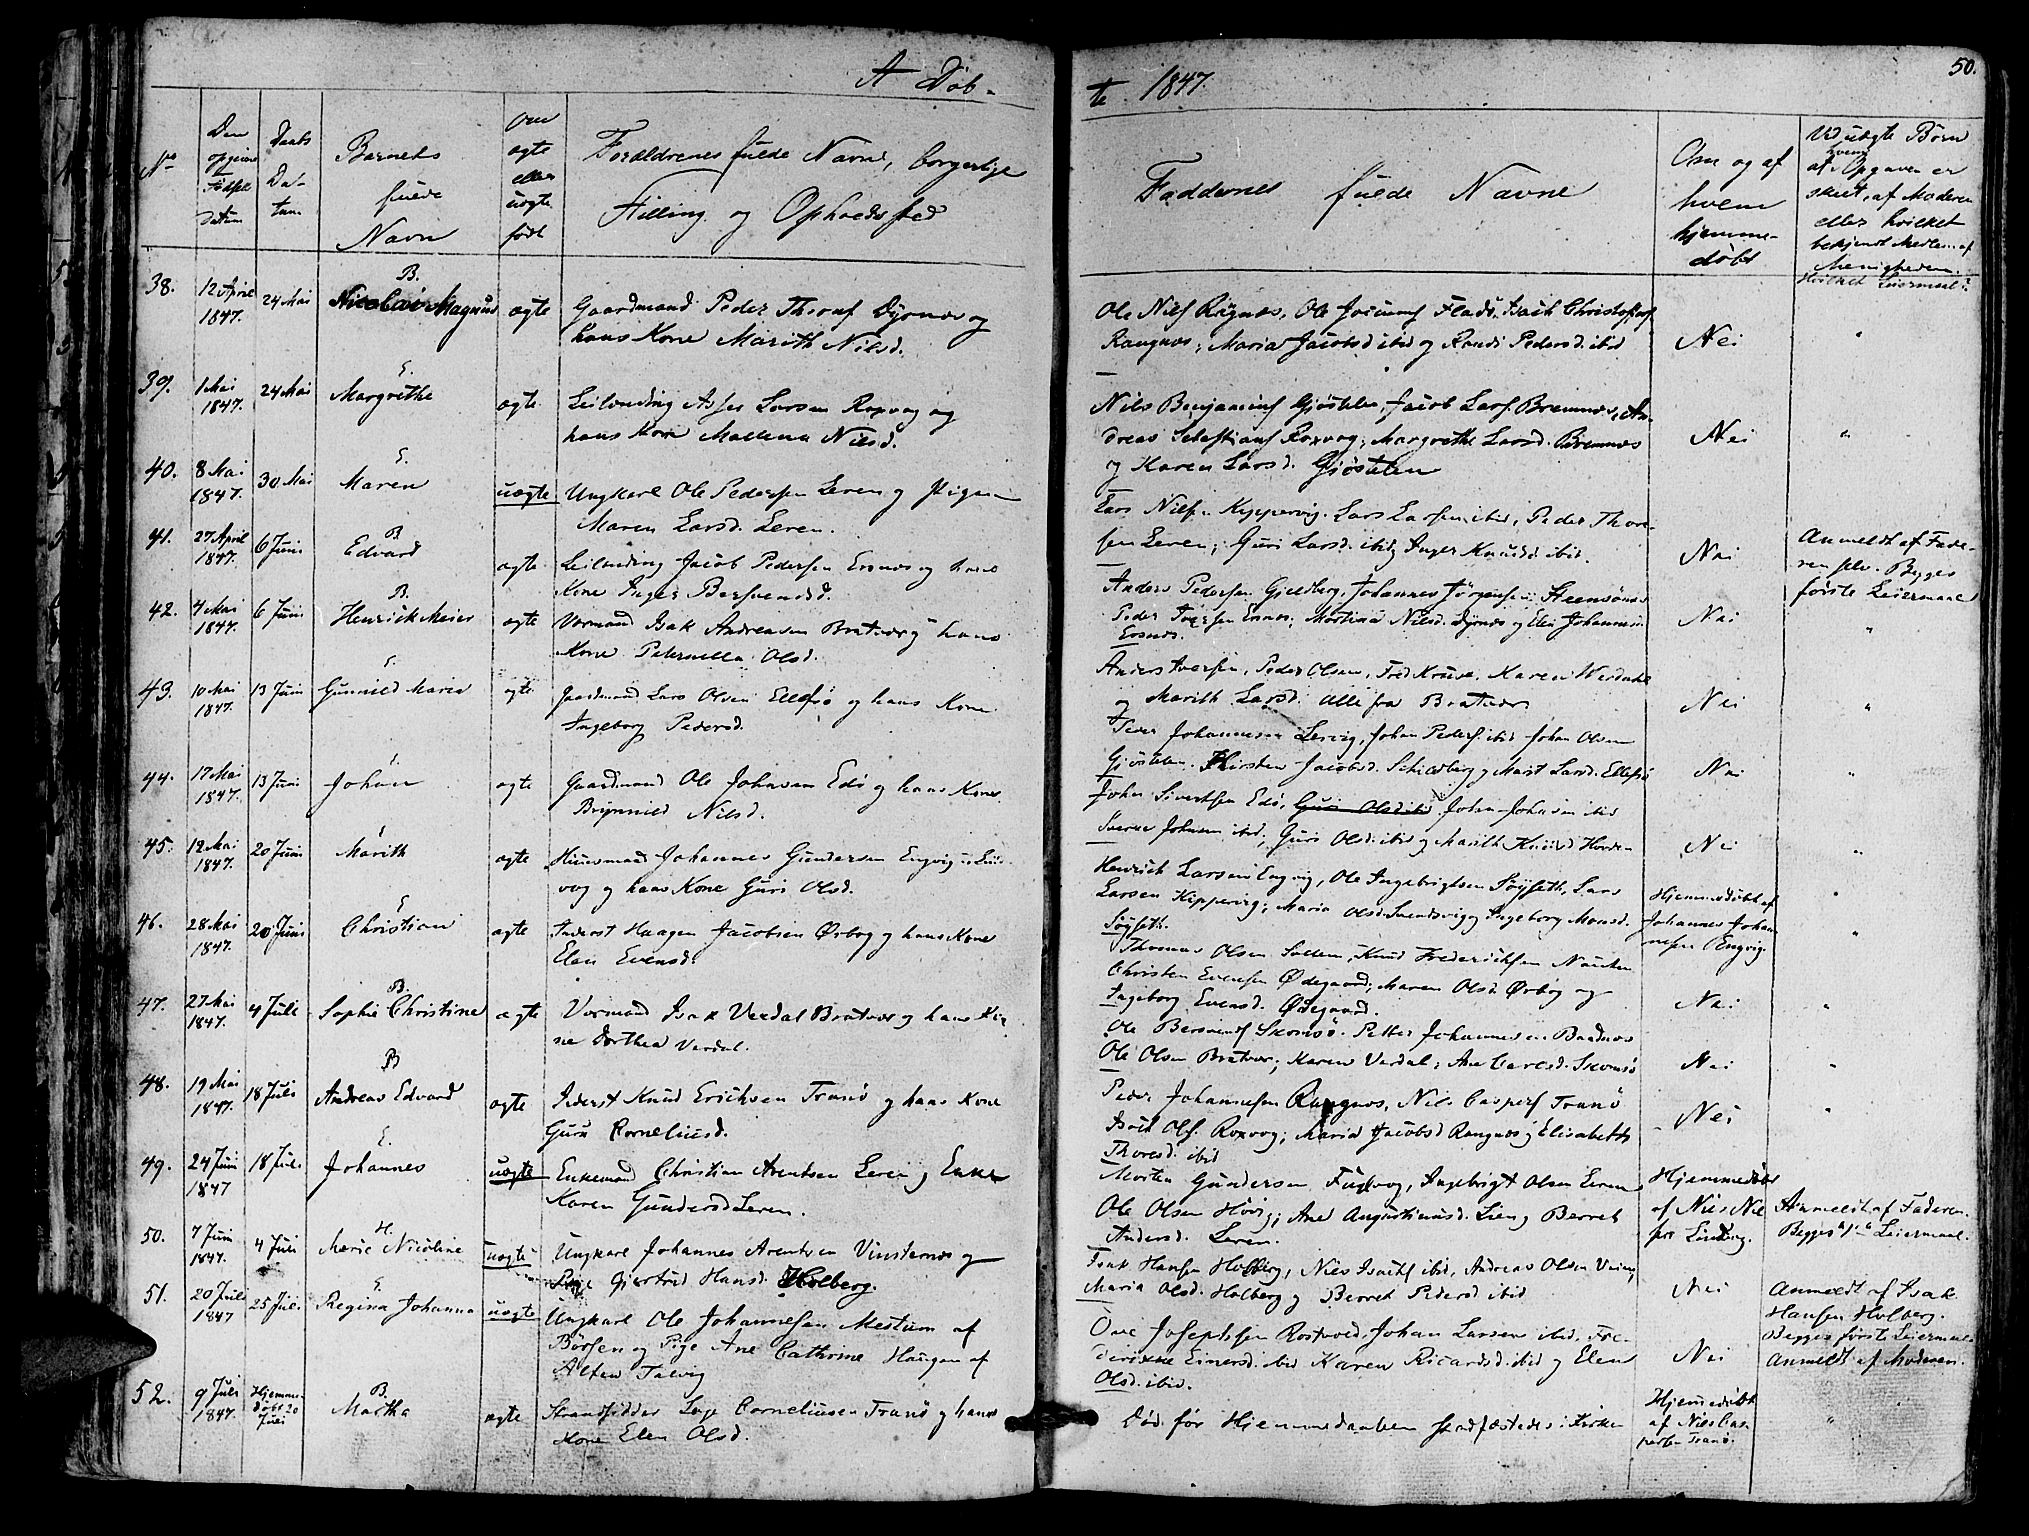 A Døb-
te 1847.
50.
No
Den opgivne Fødsels Datum
Daabs Datum
Barnets fulde Navn
Om ægte eller uægte født
Forældrenes fulde Navne, borgerlige Stilling og Opholdssted
Faddernes fulde Navne
Om og af hvem hjemmedøbt
Ved uægte Børn af hvem Opgaven er skeet, af Moderen eller hvilket bekjendt Medlem af Menigheden. Hvilket Leiermaal?
38. 12 April 1847. 24 Mai
B.
Nicolai Magnus ægte Gaardmand Peder Thoress Dyrnæs og
hans Kone Marith Nilsd.
Ole Nilss Rognæs, Ole Joenss Flads, Isach Christophers
Rangnæs; Maria Jacobsd ibid og Randi Pedersd. ibid
Nei "
39. 1 Mai 1847. 24 Mai
E.
Margrethe ægte Leilending Larsen Roxvog og
hans Kone Mallena Nilsd.
Nils Benjamins Gjøstelen, Jacob Lars. Bremnes, An-
dreas Roxvog; Margrethe Larsd. Bremnæs
og Karen Larsd. Gjøstelen
Nei "
40. 8 Mai 1847. 30 Mai
E.
Maren uægte Ungkarl Ole Pedersen Leren og Pigen
Maren Larsd. Leren.
Lars Nilsen Kyppervig. Lars Larsen ibid, Peder Thore-
sen Leren; Guri Larsd. ibid, Inger Knudsd ibid.
Nei
Anmeldt af Fade-
ren selv. Begges
første Leiermaal
41. 27 April 1847. 6 Juni
B
Edvard ægte Leilending Jacob Pedersen Ersnæs og hans
Kone Inger Bersvendsd.
Anders Pedersen Gjeldberg, Johannes Jørgensen Steensønæs
Peder Iversen Ersnæs; Martina Nilsd. Dyrnæs og Elen Johannesd
Ersnæs.
Nei "
42. 4 Mai 1847. 6 Juni
B.
Henrick Meier ægte Vormand Isak Andreasen Bratvær og hans
Kone Peternella Olsd.
Anders Iversen, Peder Olsen, Fred Kruse, Karen Werdahl
og Marith Larsd. alle fra Bratvær
Nei "
43. 10 Mai 1847. 13 Juni
E.
Gunnild Maria ægte Gaardmand Lars Olsen Ellefsø og hans Kone
Ingeborg Pedersd.
Peder Johannesen Lervig, Johan Peders. ibid Johan Olsen
Gjøstelen. Kirsten Jacobsd. Schieldberg og Marit Larsd. Ellefsø
Nei "
44. 17 Mai 1847. 13 Juni
Johan ægte Gaardmand Ole Johansen Edø og hans Kone
Brynnild Nilsd.
John Sivertsen Edø, Guri Olsd ibid John Johnsen ibid
Iver Johnsen ibid; Guri Olsd. ibid og Marith Knudsd
Nei "
45. 12 Mai 1847. 20 Juni
Marith ægte Huusmand Johannes Gundersen Engvig i Lei-
vog og hans Kone Guri Olsd.
Henrich Larsen Engvig, Ole Ingebrigtsen Søyseth, Lars
Larsen Kippervig; Maria Olsd. Svendsvig og Ingeborg Monsd.
Søyseth.
Hjemmedøbt af
Johannes Johan-
nesen Engvig
"
46. 28 Mai 1847. 20 Juni
E
Christian ægte Inderst Haagen Jacobsen Ørbog og hans Kone
Elen Evensd.
Thomas Olsen Sollem, Knud Frederichsen Nausten
Christen Evensen Ødegaard; Maren Olsd. Ørbog og
Ingeborg Evensd. Ødegaard.
Nei "
47. 27 Mai 1847. 4 Juli
B.
Sophie Christine ægte Vormand Isak Verdal Bratvær og hans Ko-
ne Dorthea Verdal.
Ole Bersvends Skomsø. Petter Johannesen Baadnæs
Ole Olsen Bratvær; Karen Verdal; Ane Carlsd. Skomsø
Nei "
48. 19 Mai 1847. 18 Juli
B
Andreas Edvard ægte Inderst Knud Erichsen Tranø og hans Kone
Guru Corneliusd.
Peder Johannesen Rangnæs, Nils Caspers Tranø
Isach Ols. Roxvog; Maria Jacobsd Rangnæs og Elisabeth
Thoresd. ibid
Nei "
49. 24 Juni 1847 18 Juli
E.
Johannes uægte Enkemand Christian Arentsen Leren og Enke
Karen Gundersd Leren.
Morten Gundersen Fuglvog, Ingebrigt Olsen Leren
Ole Olsen Høvig; Ane Augustinusd. Lien og Berret
Andersd. Leren.
Hjemmedøbt
af Nils Nil-
sen Lindvog.
Anmeldt af Faderen.
Begges Leiermaal.
50. 7 Juni 1847. 4 Juli
H.
Marie Nicoline uægte Ungkarl Johannes Arentsen Vinsternæs og
Pige Giertrud Hansd. Holberg.
Isak Hansen Holberg, Niels Isachs ibid, Andreas Olsen
Maria Olsd. Holberg og Berret Pedersd ibid
Nei
Anmeldt af Isak
Hansen Holberg.
Begges første Leiermaal
51. 20 Juli 1847 25 Juli
E.
Regina Johanna uægte Ungkarl Ole Johannesen Mestum af
Børsen og Pige Ane Cathrine Haugen af
Alten Talvig
Ove Josephsen Rostvold, Johan Larsen ibid. Fre-
derikke Einersd. ibid Karen Ricardsd. ibid og Elen
Olsd. ibid.
Nei
Anmeldt af Moderen.
52. 9 Juli 1847. Hjemme-
døbt 20
Juli
B.
Martha ægte Strandsidder Corneliusen Tranø og hans
Kone Elen Olsd.
Død før Hjemmedaaben stadfæstedes i Kirken
Hjemmedøbt
af Nils Cas-
persen Tranø.
"